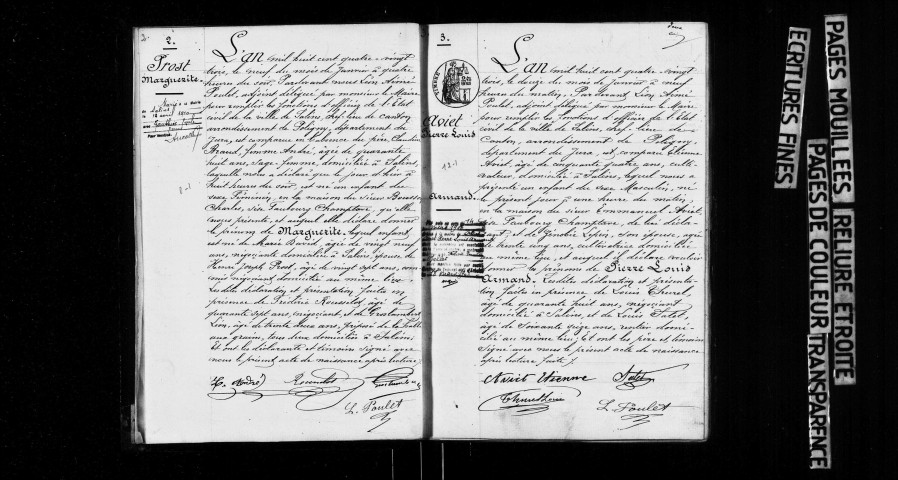 2.
Prost
Marguerite.
L'an mil huit cent quatre-vingt
trois, le neuf du mois de Janvier à quatre
heures du soir, Pardevant nous Léon Aimé
Poulet, adjoint délégué par monsieur le Maire
pour remplir les fonctions d'officier de l'Etat
civil de la ville de Salins, chef-lieu de canton,
arrondissement de Poligny, département du
Jura, est comparue en l'absence du père, Claudine
femme André, âgée de quarante
huit ans, Sage-femme, domiciliée à Salins,
laquelle nous a déclaré que le jour d'hier à
huit heures du soir, est né un enfant du
sexe Féminin, en la maison du sieur
Charles, sise Faubourg Champtave, qu'elle
nous présente, et auquel elle déclare donner
le prénom de Marguerite. lequel enfant,
est né de Marie Bard, âgée de vingt neuf
ans, négociante domiciliée à Salins, épouse de
Henri Joseph Prost, âgé de vingt sept ans,
négociant domicilié au même lieu.
Lesdites déclaration et présentation faites en
présence de Frédéric Rousselot, âgé de
quarante sept ans, négociant, et de
Léon, âgé de trente deux ans, préposé
aux grains, tous deux domiciliés à Salins,
Et ont les déclarante et témoins signé avec
nous le présent acte de naissance après lecture.
L. Poulet
3.
Aviet
Pierre Louis
Armand.
L'an mil huit cent quatre-vingt
trois, le douze du mois de Janvier à neuf
heures du matin, Pardevant, Léon Aimé
Poulet, adjoint délégué par monsieur le Maire
pour remplir les fonctions d'officier de l'Etat
civil de la ville de Salins, chef-lieu de
Canton, arrondissement de Poligny,
département du Jura, est comparu Etienne
Aviet, âgé de cinquante quatre ans, culti-
vateur, domicilié à Salins, lequel nous a
présenté un enfant du sexe Masculin, né
le présent jour à une heure du matin,
en la maison du sieur Emmanuel Aviet,
sise Faubourg Champtave, de lui décla-
rant, et de Zénobie Lépin, son épouse, âgée
de trente cinq ans, cultivatrice domiciliée
au même lieu, et auquel il déclare vouloir
donner les prénoms de Pierre Louis
Armand. Lesdites déclaration et présenta-
tion faites en présence de Louis
âgé de quarante huit ans, négociant
domicilié à Salins, et de Louis
âgé de Soixante seize ans, rentier domi-
cilié au même lieu; Et ont les père et témoins
Signé avec nous le présent acte de naissance
après lecture faite.
Aviet Etienne
L. Poulet
PAGES MOUILLEES RELIURE ETROITE
ECRITURES FINES
PAGES DE COULEUR TRANSPARENCE